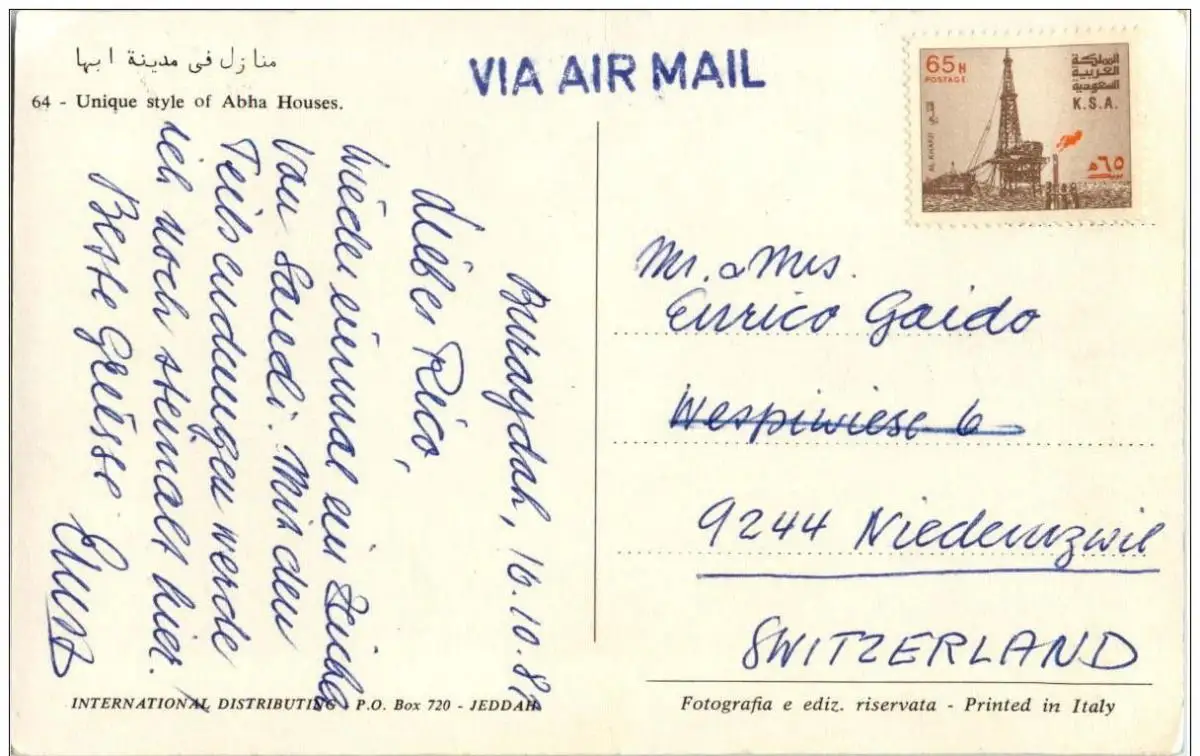 منازل في مدينة ابها
64 - Unique style of Abha Houses.
VIA AIR MAIL
65 H
POSTAGE
المملكة
العربية
السعودية
K.S.A.
AL KHAFJI
٦٥ هـ
Buraydah, 16.10.8
Lieber Rico,
Wieder einmal ein Zeichen
von Saudi. Mit den
Teilsendungen werde
ich noch steinalt hier.
Beste Grüsse
Ernst
Mr. & Mrs.
Enrico Gaido
Wespiwiese 6
9244 Niederuzwil
SWITZERLAND
INTERNATIONAL DISTRIBUTING - P.O. Box 720 - JEDDAH
Fotografia e ediz. riservata - Printed in Italy